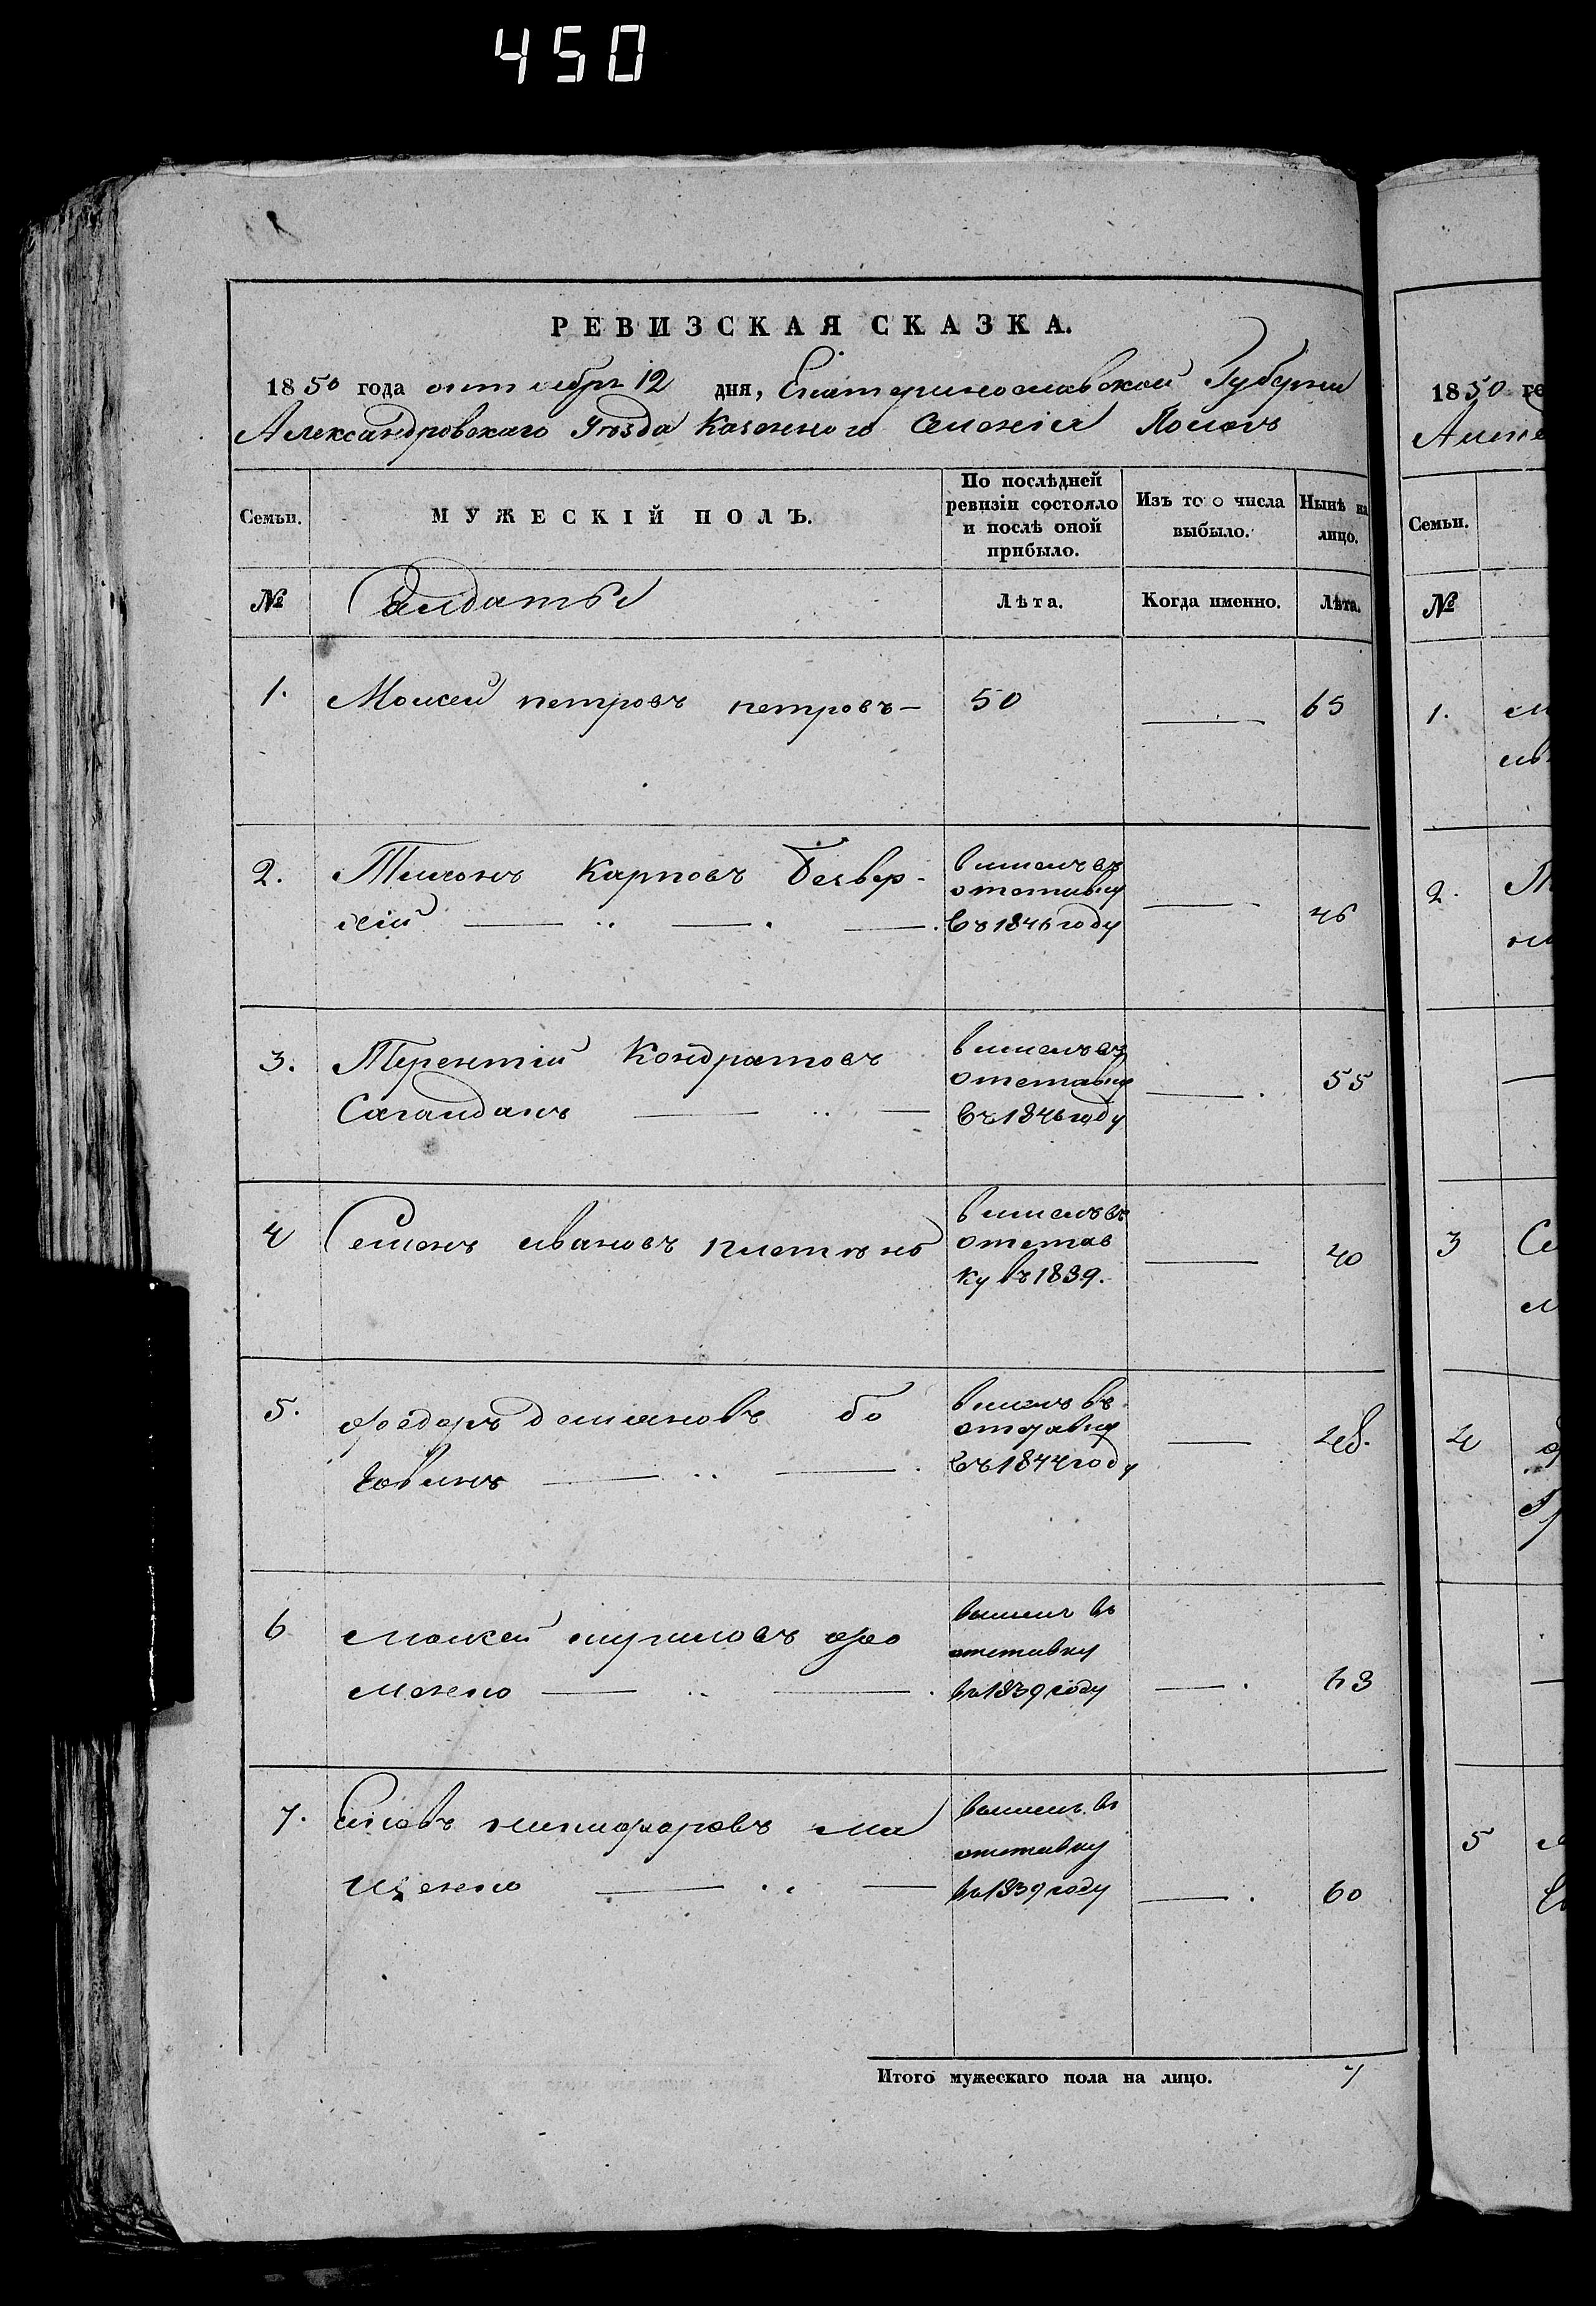 450
РЕВИЗСКАЯ СКАЗКА.
1850 года октября 12 дня, Екатеринославской Губерни
Александровскаго Уѣзда Казенного Селенія
Семьи.
МУЖЕСКІЙ ПОЛЪ.
По послѣдней ревизіи состояло и послѣ оной прибыло.
Изъ то о числа выбыло.
Нынѣ на лицо.
№
Салдаты
Лѣта.
Когда именно.
Лѣта.
1. Моисей петровъ петровъ— 50 65
2. Тихонъ Карповъ
вишелъ въ
отставку
въ 1846 году
46
3. Терентій Кондратовъ
Сагайданъ
вишелъ въ
отставку
въ 1846 году
55
4 Семенъ ивановъ
вишелъ въ
отстав
ку въ 1839.
40
5. федоръ демяновъ бо
вишелъ въ
отставку
въ 1844 году
6 моисей фо
менко
вышелъ въ
отставку
въ 1839 году
63
7. никифоровъ ма
щенко
вышелъ въ
отставку
въ 1839 году
60
Итого мужескаго пола на лицо. 7
1850 го
Семьи.
№
1.
2.
3
4
5